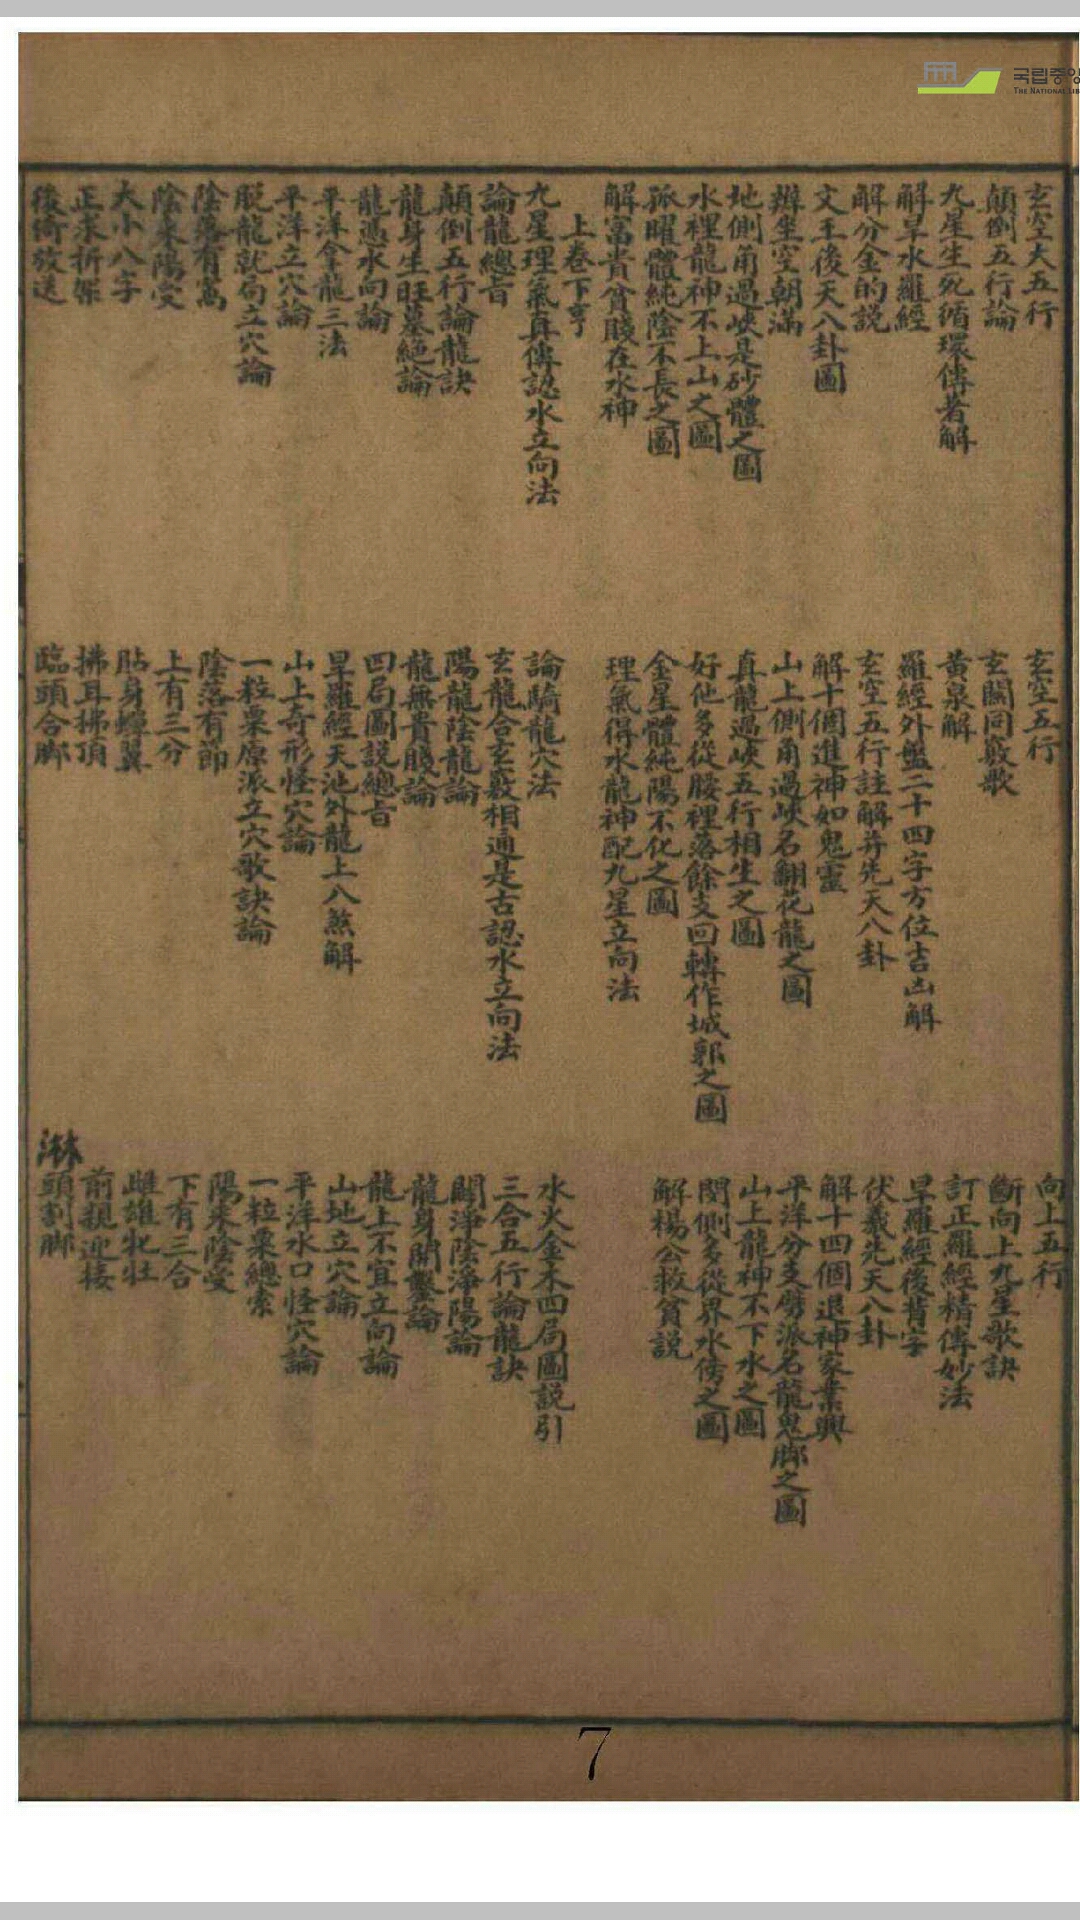 국립중앙
THE NATIONAL LIB
玄空大五行
玄空五行
向上五行
顛倒五行論
玄關同竅歌
斷向上九星歌訣
九星生死循環傳著解
黃泉解
訂正羅經精傳妙法
解旱水羅經
羅經外盤二十四字方位吉凶解
旱羅經後背字
解分金的說
玄空五行註解并先天八卦
伏羲先天八卦
文王後天八卦圖
解十個進神如鬼靈
解十四個退神家業興
辦坐空朝滿
山上側角過峽名翻花龍之圖
平洋分支劈派名龍鬼脚之圖
地側角過峽是砂體之圖
真龍過峽五行相生之圖
山上龍神不下水之圖
水裡龍神不上山之圖
好他多從腰裡落餘支回轉作城郭之圖
閃側多從界水傍之圖
孤曜體純陰不長之圖
金星體純陽不化之圖
解楊公救貧說
解富貴貧賤在水神
理氣得水龍神配九星立向法
上卷下亨
九星理氣真傳認水立向法
論騎龍穴法
水火金木四局圖說引
論龍總旨
玄龍合玄竅相通是古認水立向法
三合五行論龍訣
顛倒五行論龍訣
陽龍陰龍論
闢淨陰淨陽論
龍身生旺墓絕論
龍無貴賤論
龍身開鑿論
龍憑水向論
四局圖說總旨
龍上不宜立向論
平洋拿龍三法
旱羅經天池外龍上八煞解
山地立穴論
平洋立穴論
山上奇形怪穴論
平洋水口怪穴論
脫龍就局立穴論
一粒粟原派立穴歌訣論
一粒粟總索
陰落有窩
陰落有節
陽來陰受
陰來陽受
上有三分
下有三合
大小八字
貼身蟬翼
雌雄牝牡
正求折架
拂耳拂頂
前親迎接
後倚放送
臨頭合脚
淋頭割脚
7